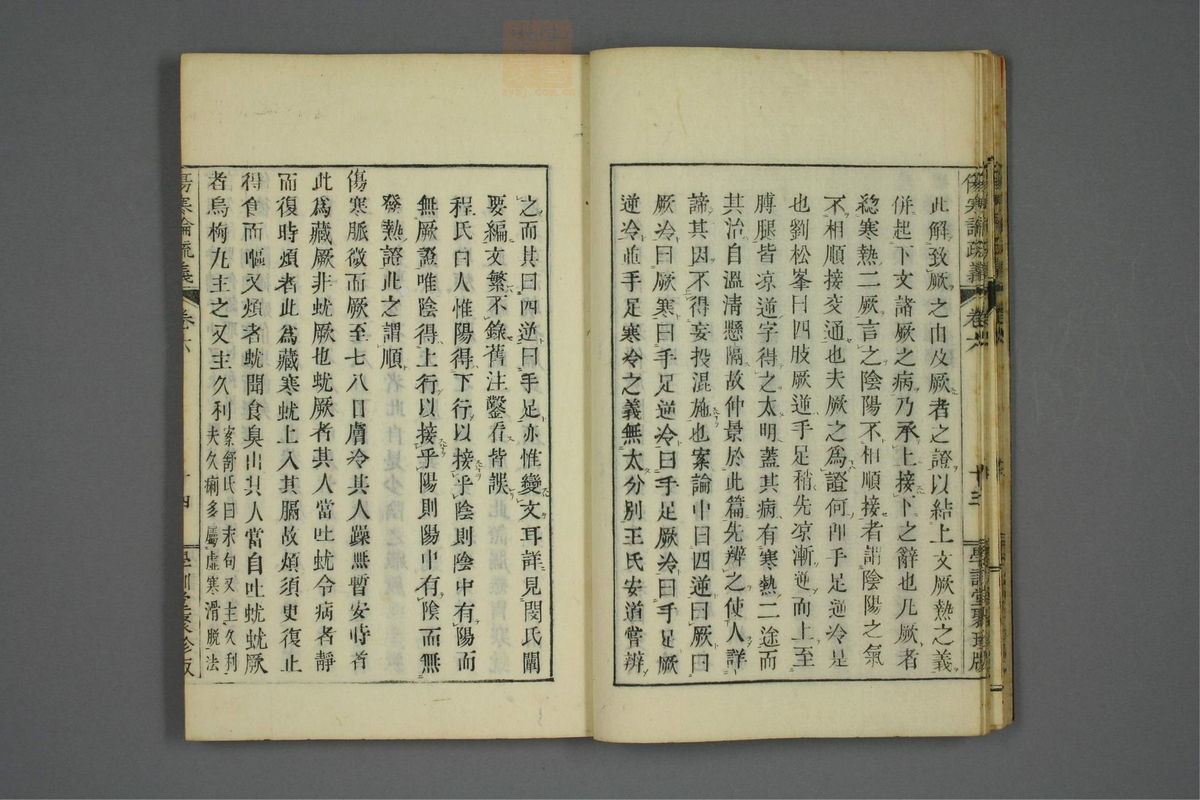 傷寒論疏義 卷六 十三 學訓堂聚珍版
此解致厥之由及厥者之證以結上文厥熱之義
併起下文諸厥之病乃承上接下之辭也凡厥者
總寒熱二厥言之陰陽不相順接者謂陰陽之氣
不相順接交通也夫厥之爲證何卽手足逆冷是
也劉松峯曰四肢厥逆手足稍先凉漸逆而上至
膊腿皆凉逆字得之太明蓋其病有寒熱二途而
其治自溫淸懸隔故仲景於此篇先辨之使人詳
諦其因不得妄投混施也案論中曰四逆曰厥曰
厥冷曰厥寒曰手足逆冷曰手足厥冷曰手足厥
逆冷並手足寒冷之義無太分別王氏安道嘗辨
之而其曰四逆曰手足亦惟變文耳詳見閔氏闡
要編文繁不錄舊注鑿看皆誤
程氏曰人惟陽得下行以接乎陰則陰中有陽而
無厥證唯陰得上行以接乎陽則陽中有陰而無
發熱證此之謂順
傷寒脈微而厥至七八日膚冷其人躁無暫安時者
此爲藏厥非蚘厥也蚘厥者其人當吐蚘令病者靜
而復時煩者此爲藏寒蚘上入其膈故煩須臾復止
得食而嘔又煩者蚘聞食臭出其人當自吐蚘蚘厥
者烏梅丸主之又主久利
案舒氏曰末句又主久利
夫久痢多屬虛寒滑脫法
傷寒論疏義 卷六 十四 學訓堂聚珍版